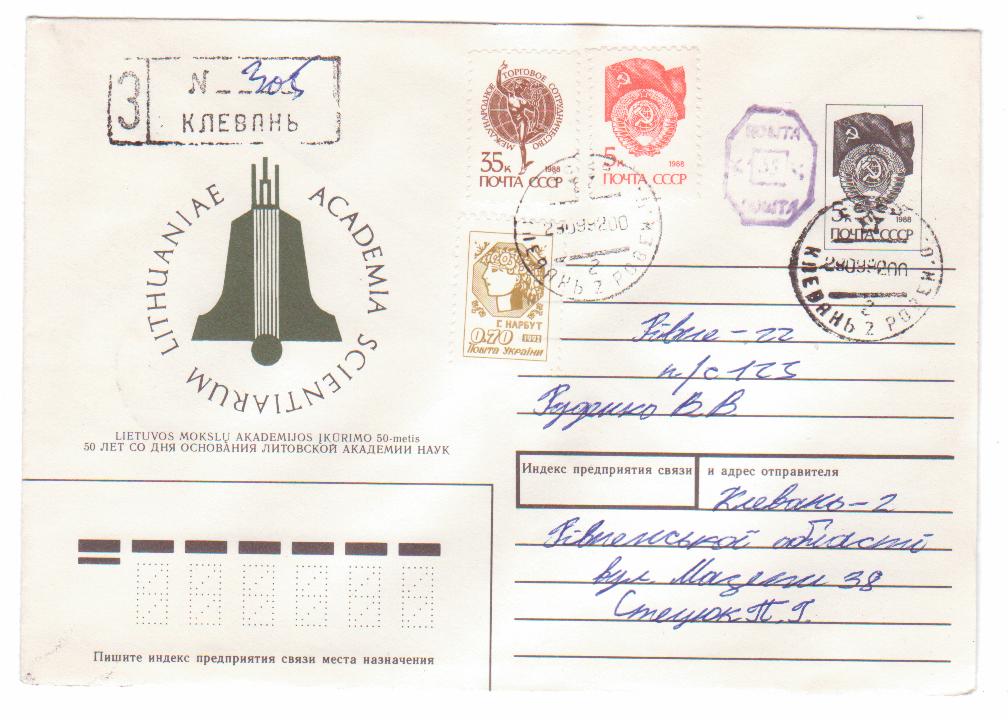 З
N 305
КЛЕВАНЬ
LITHUANIAE ACADEMIA SCIENTIARUM
LIETUVOS MOKSLŲ AKADEMIJOS ĮKŪRIMO 50-metis
50 ЛЕТ СО ДНЯ ОСНОВАНИЯ ЛИТОВСКОЙ АКАДЕМИИ НАУК
МЕЖДУНАРОДНОЕ ТОРГОВОЕ СОТРУДНИЧЕСТВО
35к 1988
ПОЧТА СССР
5к 1988
ПОЧТА СССР
ПОШТА
35
ПОШТА
5к 1988
ПОЧТА СССР
Г. НАРБУТ
0.70 1992
Пошта України
29099200
2
КЛЕВАНЬ 2 РОВЕН
29099200
2
КЛЕВАНЬ 2 РОВЕНСКО
Рівне-22
п/с 123
Руденко В.В
Индекс предприятия связи и адрес отправителя
Клевань-2
Рівненської області
вул. Мацеги 38
Стецюк П.Г.
Пишите индекс предприятия связи места назначения